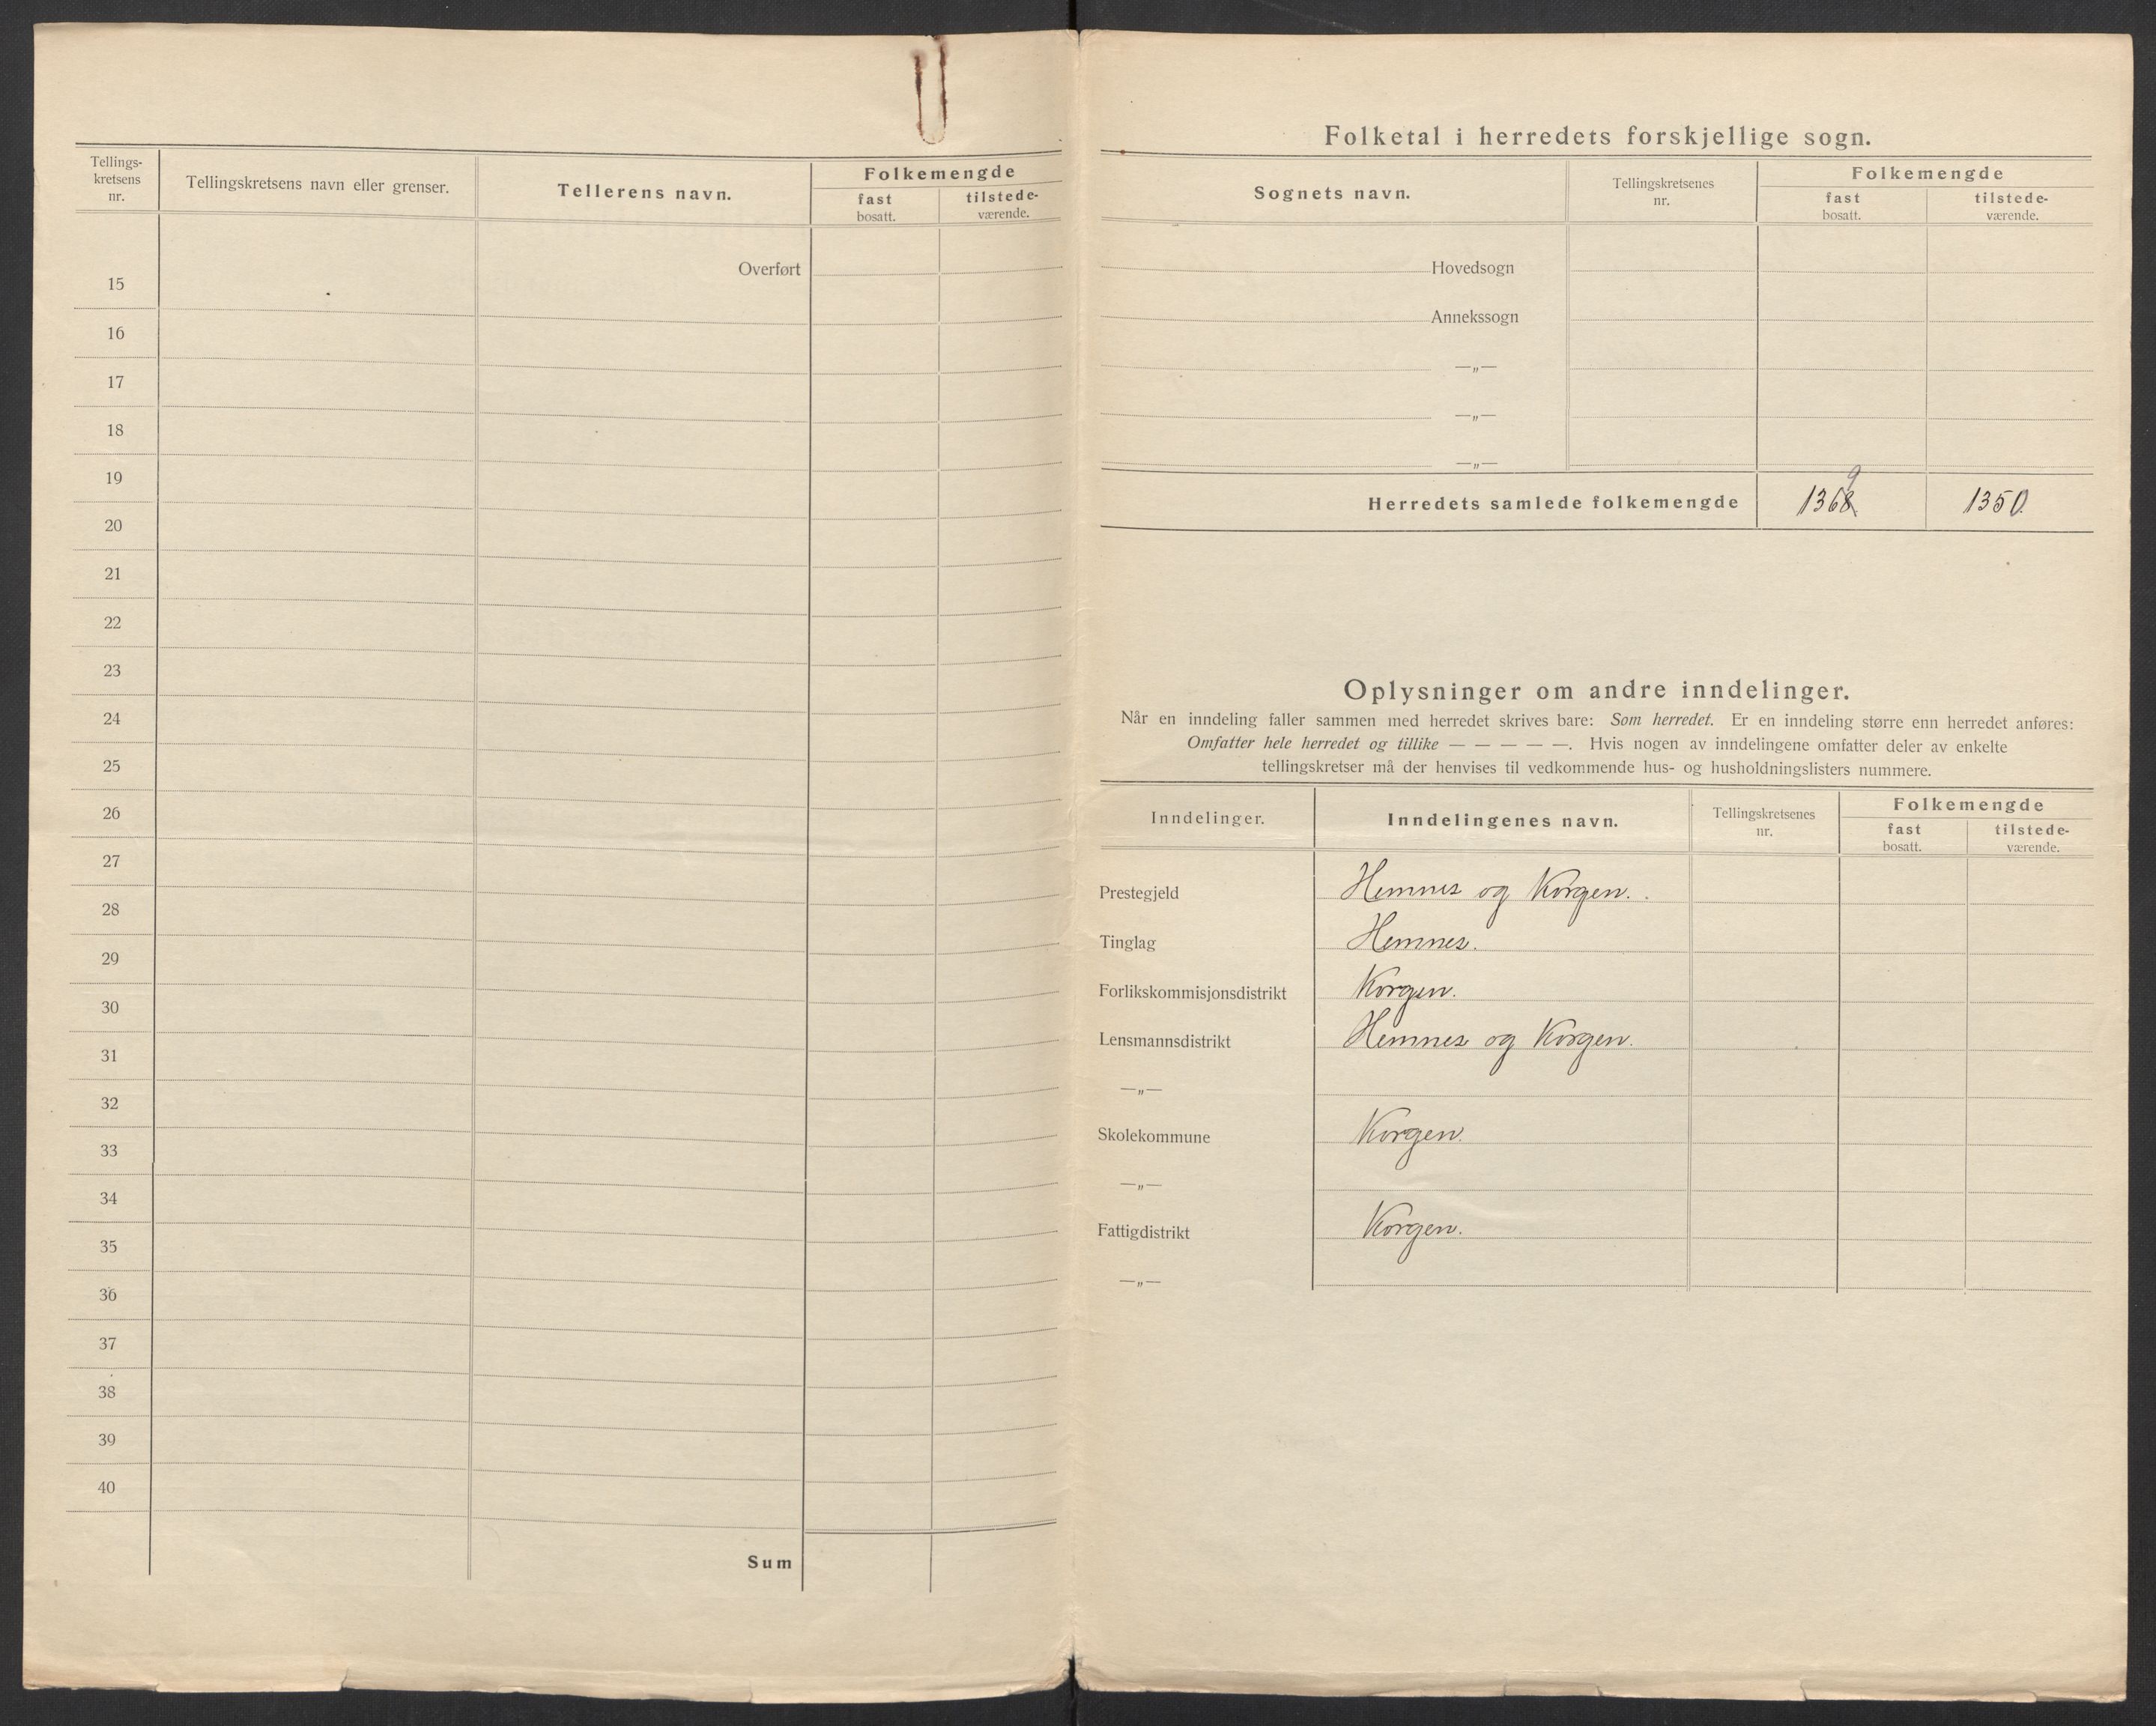 Tellings-
kretsens
nr.
Tellingskretsens navn eller grenser.
Tellerens navn.
Folkemengde
fast
bosatt.
tilstede-
værende.
Overført
15
16
17
18
19
20
21
22
23
24
25
26
27
28
29
30
31
32
33
34
35
36
37
38
39
40
Sum
Folketal i herredets forskjellige sogn.
Sognets navn.
Tellingskretsenes
nr.
Folkemengde
fast
bosatt.
tilstede-
værende.
Hovedsogn
Annekssogn
—„—
—„—
—„—
9
Herredets samlede folkemengde 1368 1350
Oplysninger om andre inndelinger.
Når en inndeling faller sammen med herredet skrives bare: Som herredet. Er en inndeling større enn herredet anføres:
Omfatter hele herredet og tillike — — — — —. Hvis nogen av inndelingene omfatter deler av enkelte
tellingskretser må der henvises til vedkommende hus- og husholdningslisters nummere.
Inndelinger.
Inndelingenes navn.
Tellingskretsenes
nr.
Folkemengde
fast
bosatt.
tilstede-
værende.
Prestegjeld Hemnes og Korgen.
Tinglag Hemnes.
Forlikskommisjonsdistrikt Korgen.
Lensmannsdistrikt Hemnes og Korgen.
—„—
Skolekommune Korgen.
—„—
Fattigdistrikt Korgen.
—„—